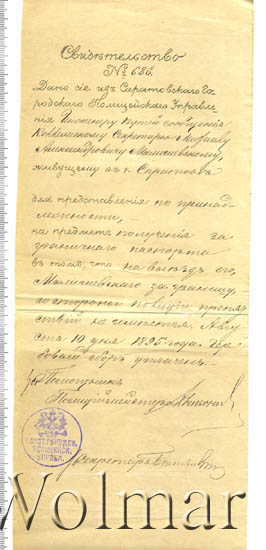 Свидѣтельство
№ 686.
Дано сіе изъ Саратовскаго Го-
родского Полицейскаго Управле-
нія Инженеру Путей сообщенія
Секретарю
Александровичу
живущему въ г. Саратовѣ
для представленія по принад-
лежности,
на предметъ полученія за-
граничнаго паспорта
въ томъ, что на выѣздъ его,
за границу,
со стороны полиціи препят-
ствій не имѣется. Авгу-
ста 10 дня 1895 года. Гер-
бовый сборъ уплаченъ.
Помощникъ
Полиціймейстера
Секретарь
САРАТ. ГОРОДСК.
ПОЛИЦЕЙСК.
УПРАВЛ.
Wolmar